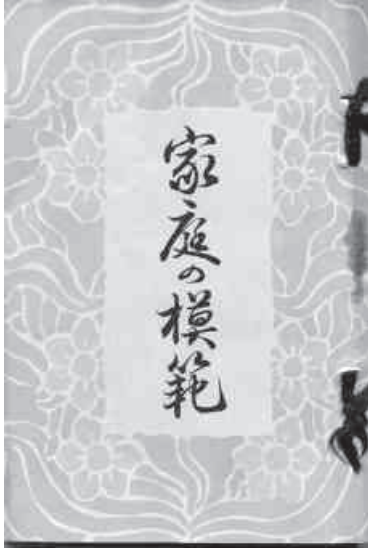 家庭の模範